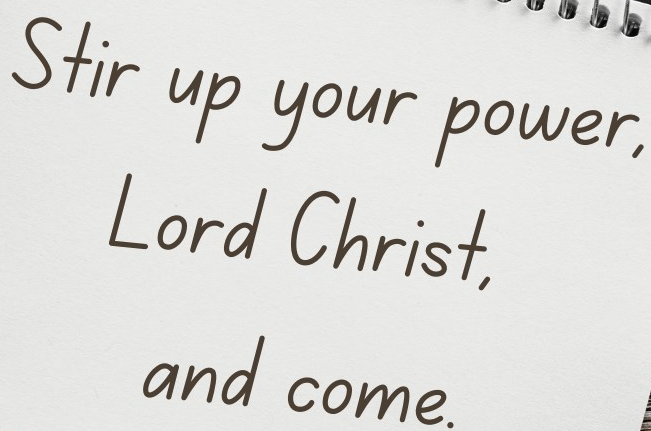 Stir up your power,
Lord Christ,
and come.